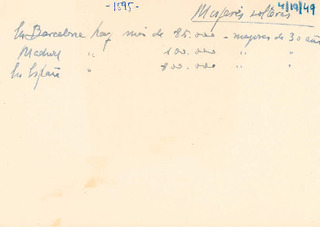 -1595-
Mujeres solteras 4/10/49
En Barcelona hay más de 85.000 - mayores de 30 años
Madrid " 100.000 " "
En España " 800.000 " "